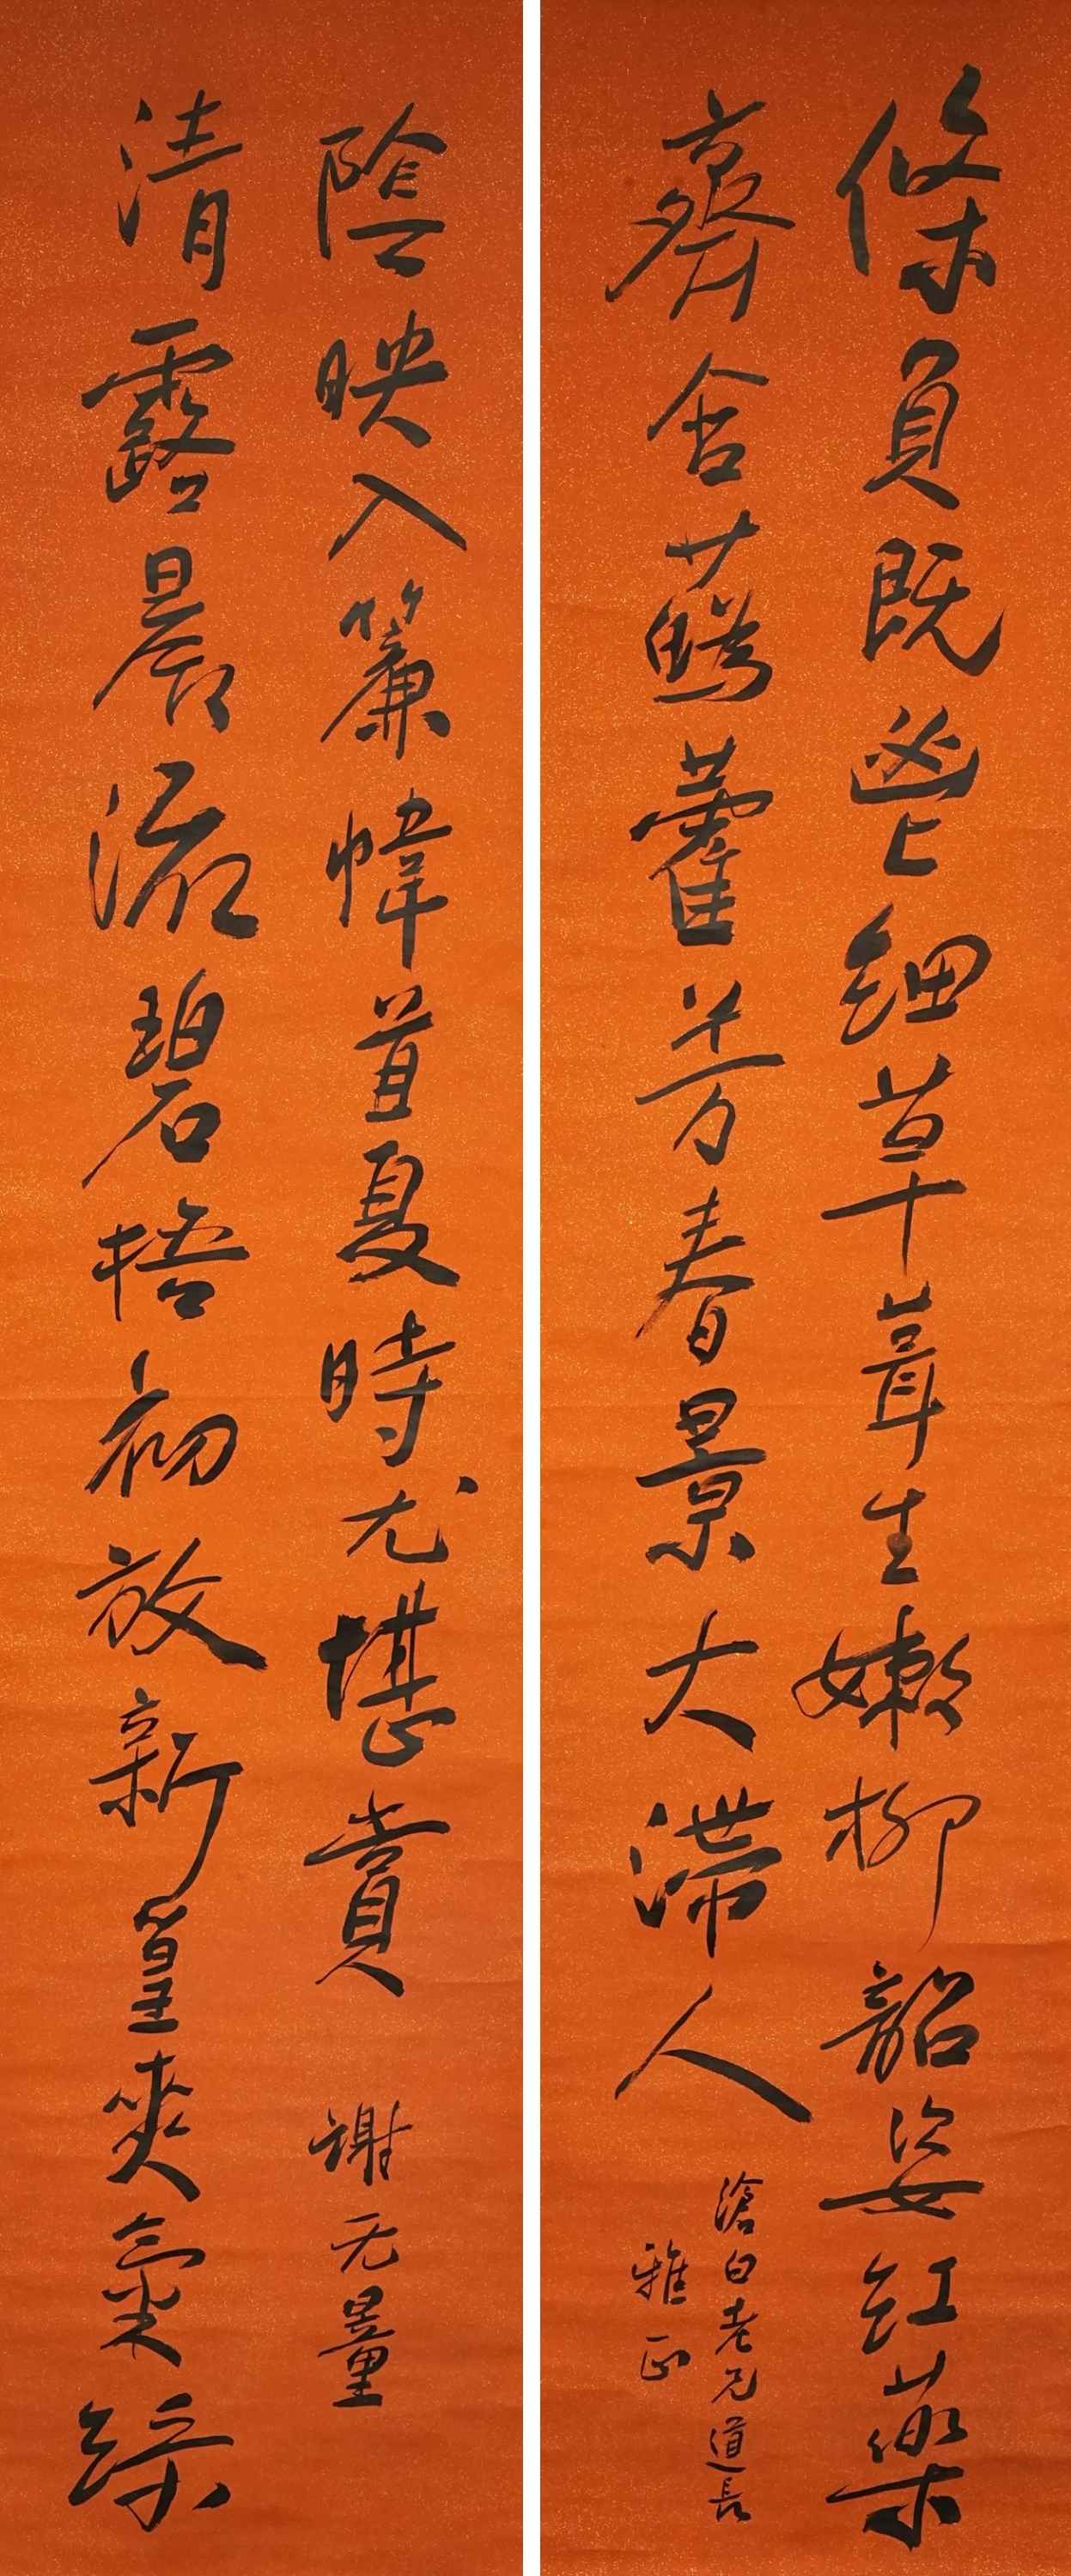 條負既鬯細草茸生嫩柳韶姿紅藥
齊含蘚藿芳春景大滯人
滄白老兄道長
雅正
清露晨流碧梧初放新篁爽氣綠
陰映入簾幃首夏時尤堪賞
謝无量